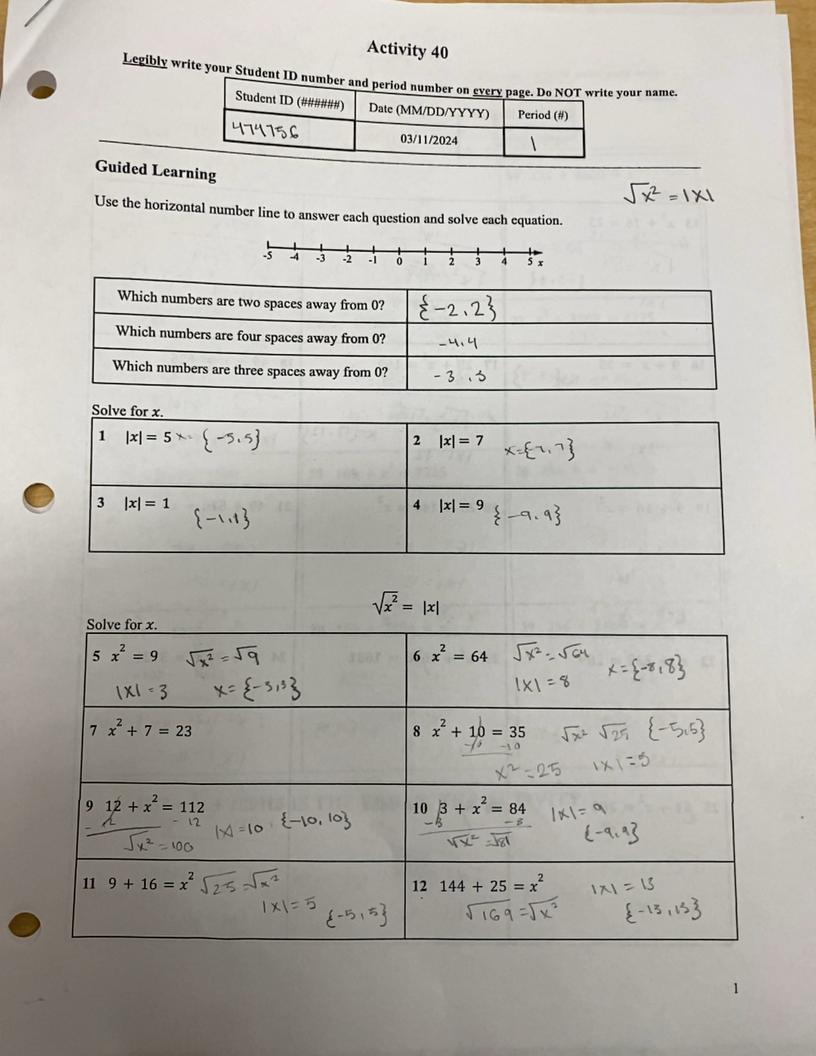 Activity 40
Legibly write your Student ID number and period number on every page. Do NOT write your name.
Student ID (######) Date (MM/DD/YYYY) Period (#)
474756 03/11/2024 1
Guided Learning
√x² = |x|
Use the horizontal number line to answer each question and solve each equation.
-5 -4 -3 -2 -1 0 1 2 3 4 5 x
Which numbers are two spaces away from 0? {-2,2}
Which numbers are four spaces away from 0? -4,4
Which numbers are three spaces away from 0? -3,3
Solve for x.
1 |x| = 5 x= {-5,5}
2 |x| = 7 x={7,7}
3 |x| = 1 {-1,1}
4 |x| = 9 {-9,9}
√x² = |x|
Solve for x.
5 x² = 9 √x² = √9
|x| = 3 x = {-3,3}
6 x² = 64 √x² = √64
|x| = 8 x={-8,8}
7 x² + 7 = 23
8 x² + 10 = 35 √x² √25 {-5,5}
-10 -10
x² = 25 |x| = 5
9 12 + x² = 112
-12 -12 |x| = 10 {-10,10}
√x² = 100
10 3 + x² = 84 |x| = 9
-3 -3 {-9,9}
√x² = √81
11 9 + 16 = x² √25 = √x²
|x| = 5 {-5,5}
12 144 + 25 = x² |x| = 13
√169 = √x² {-13,13}
1